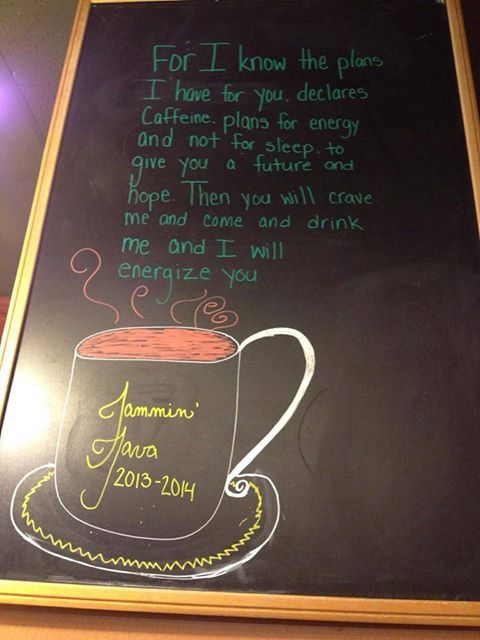 For I know the plans
I have for you. declares
Caffeine. plans for energy
and not for sleep. to
give you a future and
hope. Then you will crave
me and come and drink
me and I will
energize you
Jammin'
Java
2013-2014